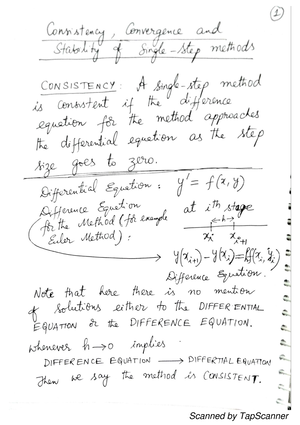 1
Consistency, Convergence and
Stability of Single-Step methods
CONSISTENCY : A single-step method
is consistent if the difference
equation for the method approaches
the differential equation as the step
size goes to zero.
Differential Equation : y' = f(x, y)
Difference Equation at ith stage
for the Method (for example
Euler Method) :
h
xi xi+1
y(xi+1) - y(xi) = hf(xi, yi)
Difference Equation.
Note that here there is no mention
of solutions either to the DIFFERENTIAL
EQUATION or the DIFFERENCE EQUATION.
whenever h→0 implies
DIFFERENCE EQUATION → DIFFERTIAL EQUATION
Then we say the method is CONSISTENT.
Scanned by TapScanner